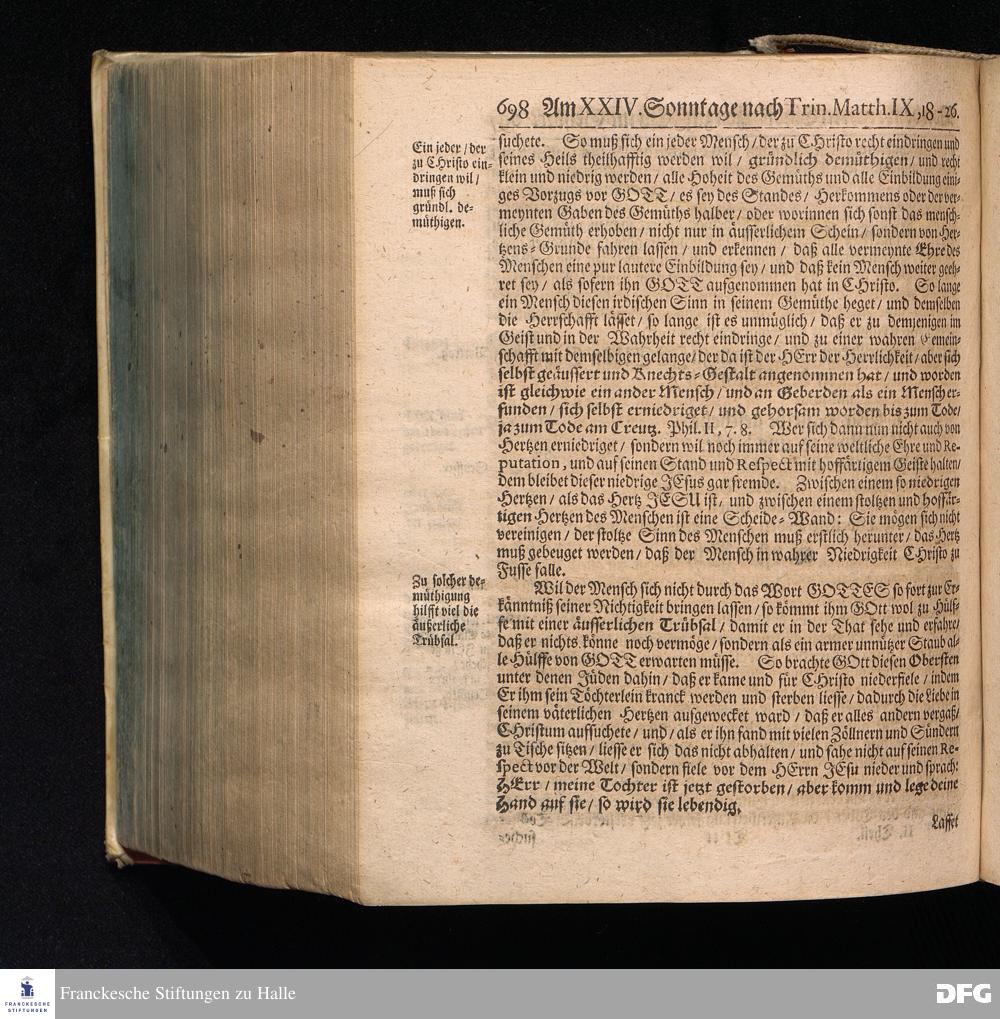 698 Am XXIV. Sonntage nach Trin. Matth. IX, 18-26.
Ein jeder / der
zu CHristo ein-
dringen wil /
muß sich
gründl. de-
müthigen.
suchete. So muß sich ein jeder Mensch / der zu CHristo recht eindringen und
seines Heils theilhafftig werden wil / gründlich demüthigen / und recht
klein und niedrig werden / alle Hoheit des Gemüths und alle Einbildung eini-
ges Vorzugs vor GOTT / es sey des Standes / Herkommens oder der ver-
meynten Gaben des Gemüths halber / oder worinnen sich sonst das mensch-
liche Gemüth erhoben / nicht nur in äusserlichem Schein / sondern von Her-
tzens-Grunde fahren lassen / und erkennen / daß alle vermeynte Ehre des
Menschen eine pur lautere Einbildung sey / und daß kein Mensch weiter geeh-
ret sey / als sofern ihn GOTT aufgenommen hat in CHristo. So lange
ein Mensch diesen irdischen Sinn in seinem Gemüthe heget / und demselben
die Herrschafft lässet / so lange ist es unmüglich / daß er zu demjenigen im
Geist und in der Wahrheit recht eindringe / und zu einer wahren Gemein-
schafft mit demselbigen gelange / der da ist der HErr der Herrlichkeit / aber sich
selbst geäussert und Knechts-Gestalt angenommen hat / und worden
ist gleich wie ein ander Mensch / und an Geberden als ein Mensch er-
funden / sich selbst erniedriget / und gehorsam worden bis zum Tode /
ja zum Tode am Creutz. Phil. II, 7. 8. Wer sich dann nun nicht auch von
Hertzen erniedriget / sondern wil noch immer auf seine weltliche Ehre und Re-
putation, und auf seinen Stand und Respect mit hoffärtigem Geiste halten /
dem bleibet dieser niedrige JEsus gar fremde. Zwischen einem so niedrigen
Hertzen / als das Hertz JESU ist, und zwischen einem stoltzen und hoffär-
tigen Hertzen des Menschen ist eine Scheide-Wand: Sie mögen sich nicht
vereinigen / der stoltze Sinn des Menschen muß erstlich herunter / das Hertz
muß gebeuget werden / daß der Mensch in wahrer Niedrigkeit CHristo zu
Fusse falle.
Zu solcher de-
müthigung
hilfft viel die
äußerliche
Trübsal.
Wil der Mensch sich nicht durch das Wort GOTTES so fort zur Er-
känntniß seiner Nichtigkeit bringen lassen / so kömmt ihm GOtt wol zu Hülf-
fe mit einer äusserlichen Trübsal / damit er in der That sehe und erfahre /
daß er nichts könne noch vermöge / sondern als ein armer unnützer Staub al-
le Hülffe von GOTT erwarten müsse. So brachte GOtt diesen Obersten
unter denen Jüden dahin / daß er kame und für CHristo niederfiele / indem
Er ihm sein Töchterlein kranck werden und sterben liesse / dadurch die Liebe in
seinem väterlichen Hertzen aufgewecket ward / daß er alles andern vergaß /
CHristum aufsuchete / und / als er ihn fand mit vielen Zöllnern und Sündern
zu Tische sitzen / liesse er sich das nicht abhalten / und sahe nicht auf seinen Re-
spect vor der Welt / sondern fiele vor dem HErrn JEsu nieder und sprach:
HErr / meine Tochter ist jetzt gestorben / aber komm und lege deine
Hand auf sie / so wird sie lebendig.
Lasset
FRANCKESCHE
STIFTUNGEN
Franckesche Stiftungen zu Halle
DFG